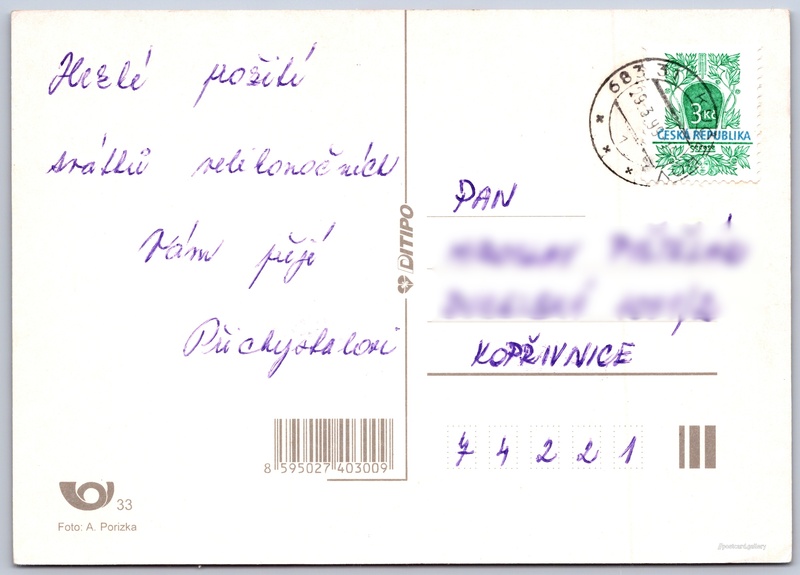 Hezké požití
svátků velikonočních
Vám přejí
Přichystalovi
8 595027 403009
33
Foto: A. Porizka
DITIPO
683 31
29.3.99
3 Kč
ČESKÁ REPUBLIKA
PAN
KOPŘIVNICE
7 4 2 2 1